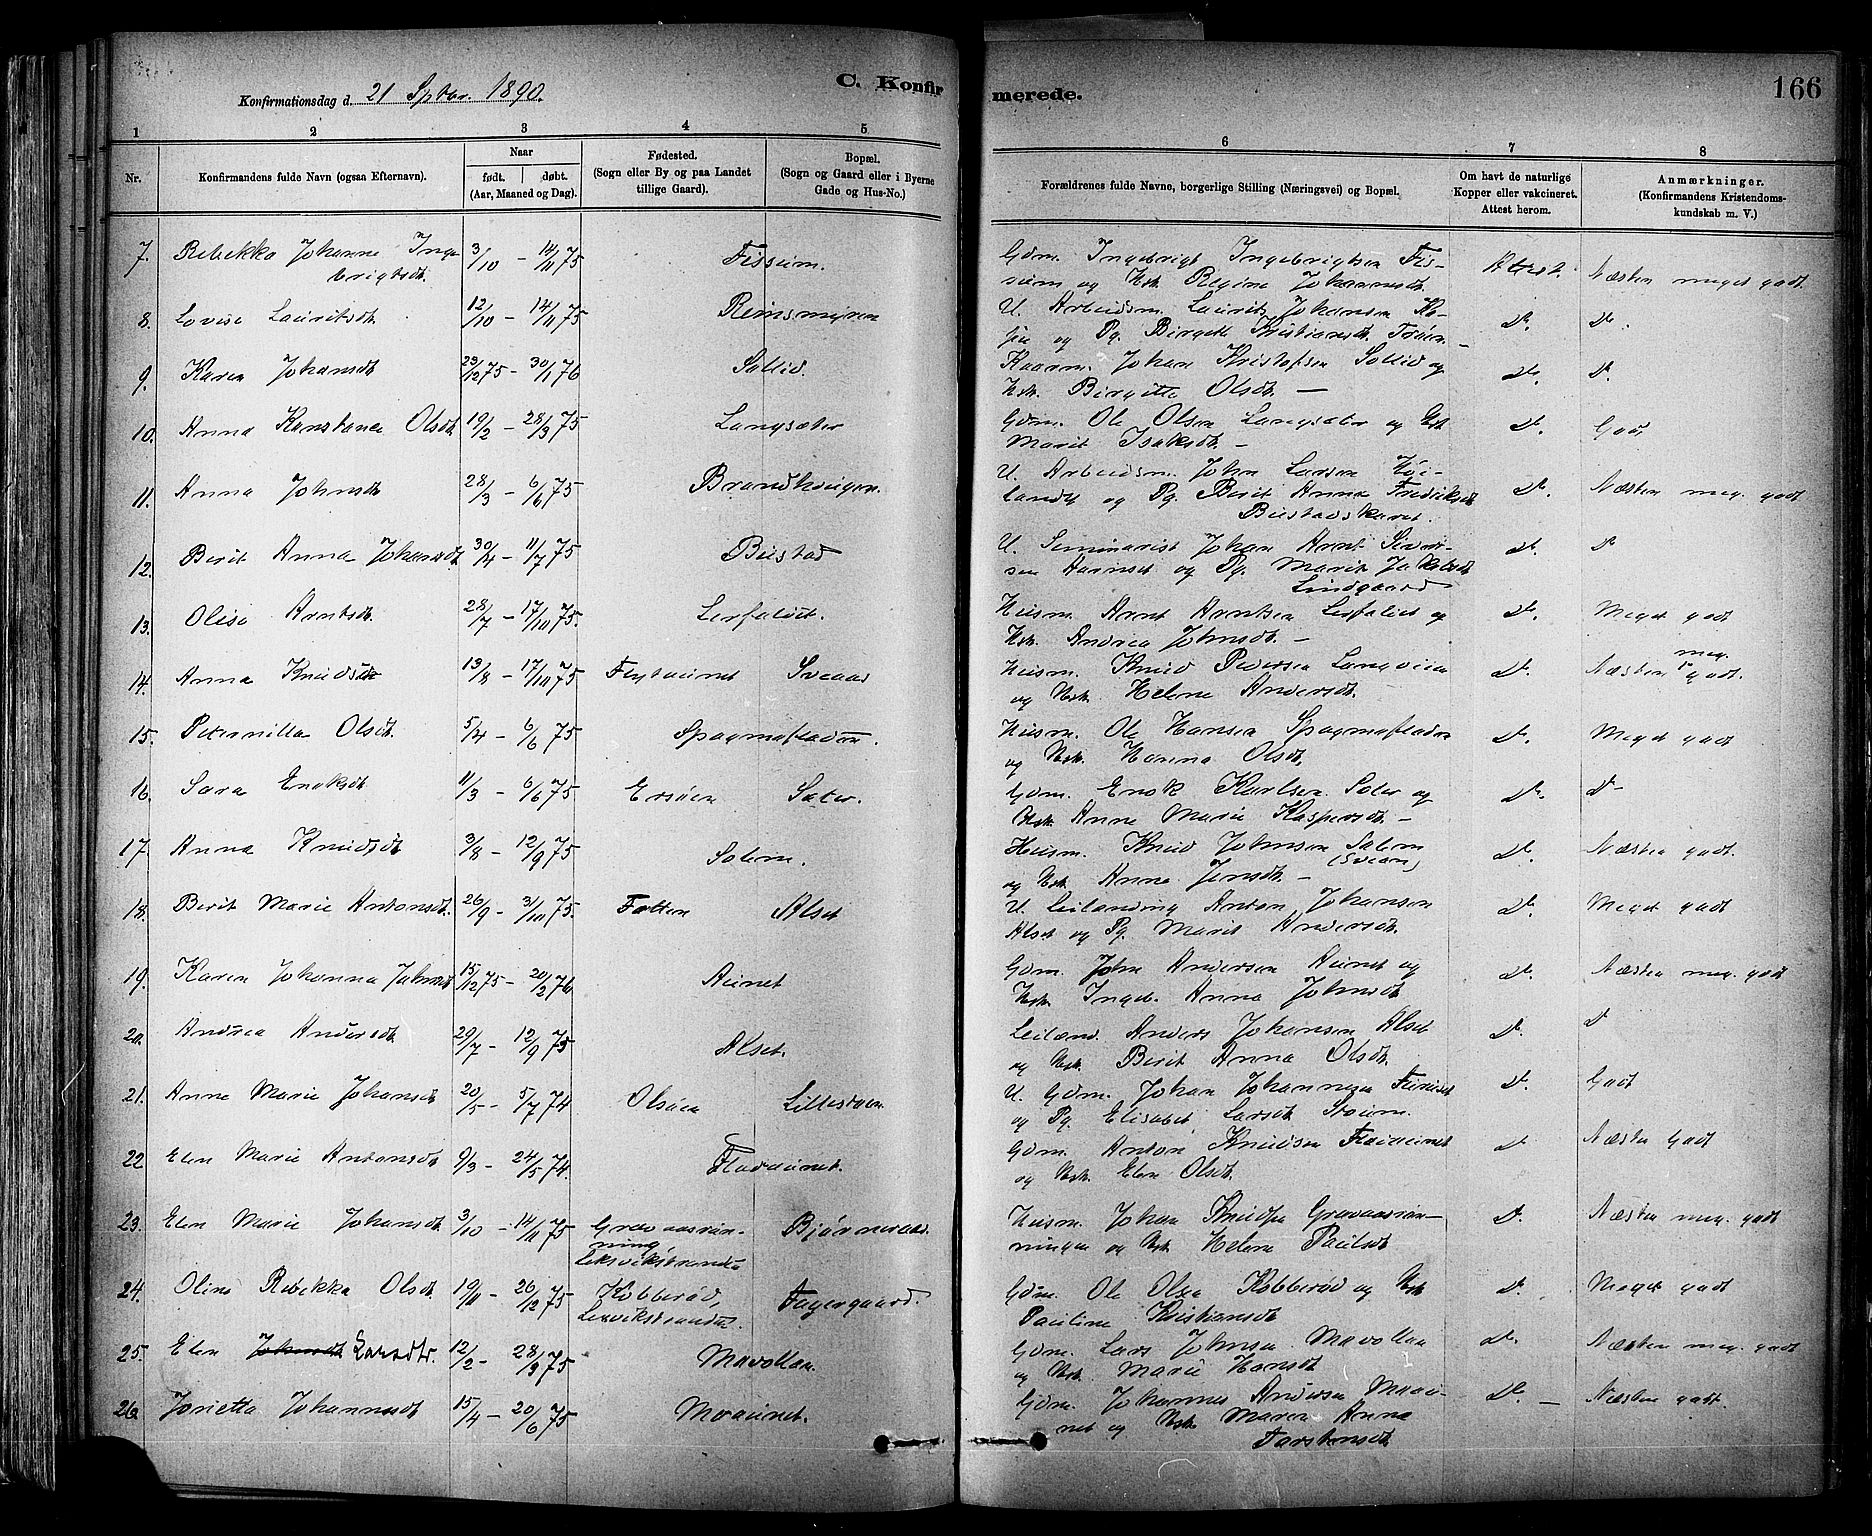 Konfirmationsdag d. 21 Sptbr. 1890.
C. Konfirmerede.
166
1 2 3 4 5 6 7 8
Nr.
Konfirmandens fulde Navn (ogsaa Efternavn).
Naar
født. døbt.
(Aar, Maaned og Dag).
Fødested.
(Sogn eller By og paa Landet
tillige Gaard).
Bopæl.
(Sogn og Gaard eller i Byerne
Gade og Hus-No.)
Forældrenes fulde Navne, borgerlige Stilling (Næringsvei) og Bopæl.
Om havt de naturlige
Kopper eller vakcineret.
Attest herom.
Anmærkninger.
(Konfirmandens Kristendoms-
kundskab m. V.)
7. Rebekka Johanne Inge 3/10 - 14/11 75 Fisseim. Gdm. Ingebrigt Ingebrigtsen Fis- Attest. Næsten meget godt
brigtsdt. seim og Hstr. Regine Johannesdt.
8. Lovise Lauritsdt. 12/10 - 14/11 75 Reinsmyren U. Arbeidsm. Laurits Johansen d. d.
og Pg. Birgitte Kristiansdt.
9. Karen Johansdt 23/12 75 - 30/1 76 Sollid. Johan Kristofsen Sollid og d. d.
Hstr. Birgitte Olsdt. -
10. Anna Konstance Olsdt 19/2 - 28/3 75 Langsæter Gdm. Ole Olsen Langsæter og Hst d. Godt
Marit Isaksdt -
11. Anna Johnsdt 28/3 - 6/6 75 Brandhaugen. U. Arbeidsm. John Larsen Høi- d. Næsten meg. godt
landet og Pg. Berit Anna Fredriksdt
Bustadskaret.
12. Berit Anna Johansdt. 30/4 - 11/7 75 Bustad U. Seminarist Johan Arnt Sivert- d. d
sen og Pg. Marit Jakobsdt
Lindgaard
13. Olise Arntsdt. 28/7 - 17/10 75. Lerfaldet. Husm. Arnt Arntsen Lerfaldet og d. Meget godt
Hstr. Andrea Johnsdt. -
14. Anna Knudsdt 13/8 - 17/10 75 Sveaas Husm. Knud Pedersen Langveien d. Næsten meg. godt.
og Hstr. Helene Andersdt.
15. Peternille Olsdt. 5/4 - 6/6 75 Spagmofladen. Husm. Ole Hansen Spagmofladen d. Meget godt
og Hstr. Hanna Olsdt.
16. Sara Enoksdt 11/3 - 6/6 75 Ersøien Sæter. Gdm. Enok Karlsen Sæter og d. d
Hstr. Anne Marie Kaspersdt. -
17. Anna Knudsdt 3/8 - 12/9 75 Solem. Husm. Knud Johnsen Solem d. Næsten godt.
(Svean)
og Hstr. Anna Jensdt. -
18. Berit Marie Antonsdt. 26/9 - 3/10 75. Fatten Alset U. Leilænding Anton Johansen d. Meget godt
Alset og Pg. Marit Andersdt.
19. Karen Johanna Johnsdt 15/12 75 - 20/2 76 Aunet Gdm. John Andersen Aunet og d. Næsten meg. godt
Hstr. Ingeb. Anna Johnsdt
20. Andrea Andersdt. 29/7 - 12/9 75 Alset. Leilænd. Anders Johansen Alset d. d
og Hstr. Berit Anna Olsdt.
21. Anne Marie Johansdt 20/5 - 5/7 74 Olsøien U. Gdm. Johan Johannesen d. Godt
og Pg. Elisabet Larsdt. Støum.
22 Elen Marie Antonsdt 9/3 - 24/5 74. Flaaaunet. Gdm. Anton Knudsen Flaaaunet d Næsten Godt
og Hstr. Elen Olsdt.
23. Elen Marie Johansdt 3/10 - 14/11 75 Gravaasrøn- Bjørneraas. Husm. Johan Knudsen Gravaasrøn- d. Næsten meg. godt
ning ningen og Hstr. Helene Paulsdt
Leksvikstranden
24. Oline Rebekka Olsdt. 19/11 - 26/12 75 Kobberød, Fagergaard. Gdm. Ole Olsen Kobberød og Hst d. Meget godt
Lexvikstranden. Pauline Kristiansdt
25. Elen Johnsdt Larsdtr. 12/2 - 28/3 75 Mavollan. Gdm. Lars Johnsen Mavollan d. Næsten meg. godt
og Hstr. Marie Hansdt
26. Jonetta Johannesdt 15/4 - 20/6 75 Moaunet. Gdm. Johannes Andersen Moau- d. - Næsten godt.
net og Hstr. Maren Anna
Torstensdt